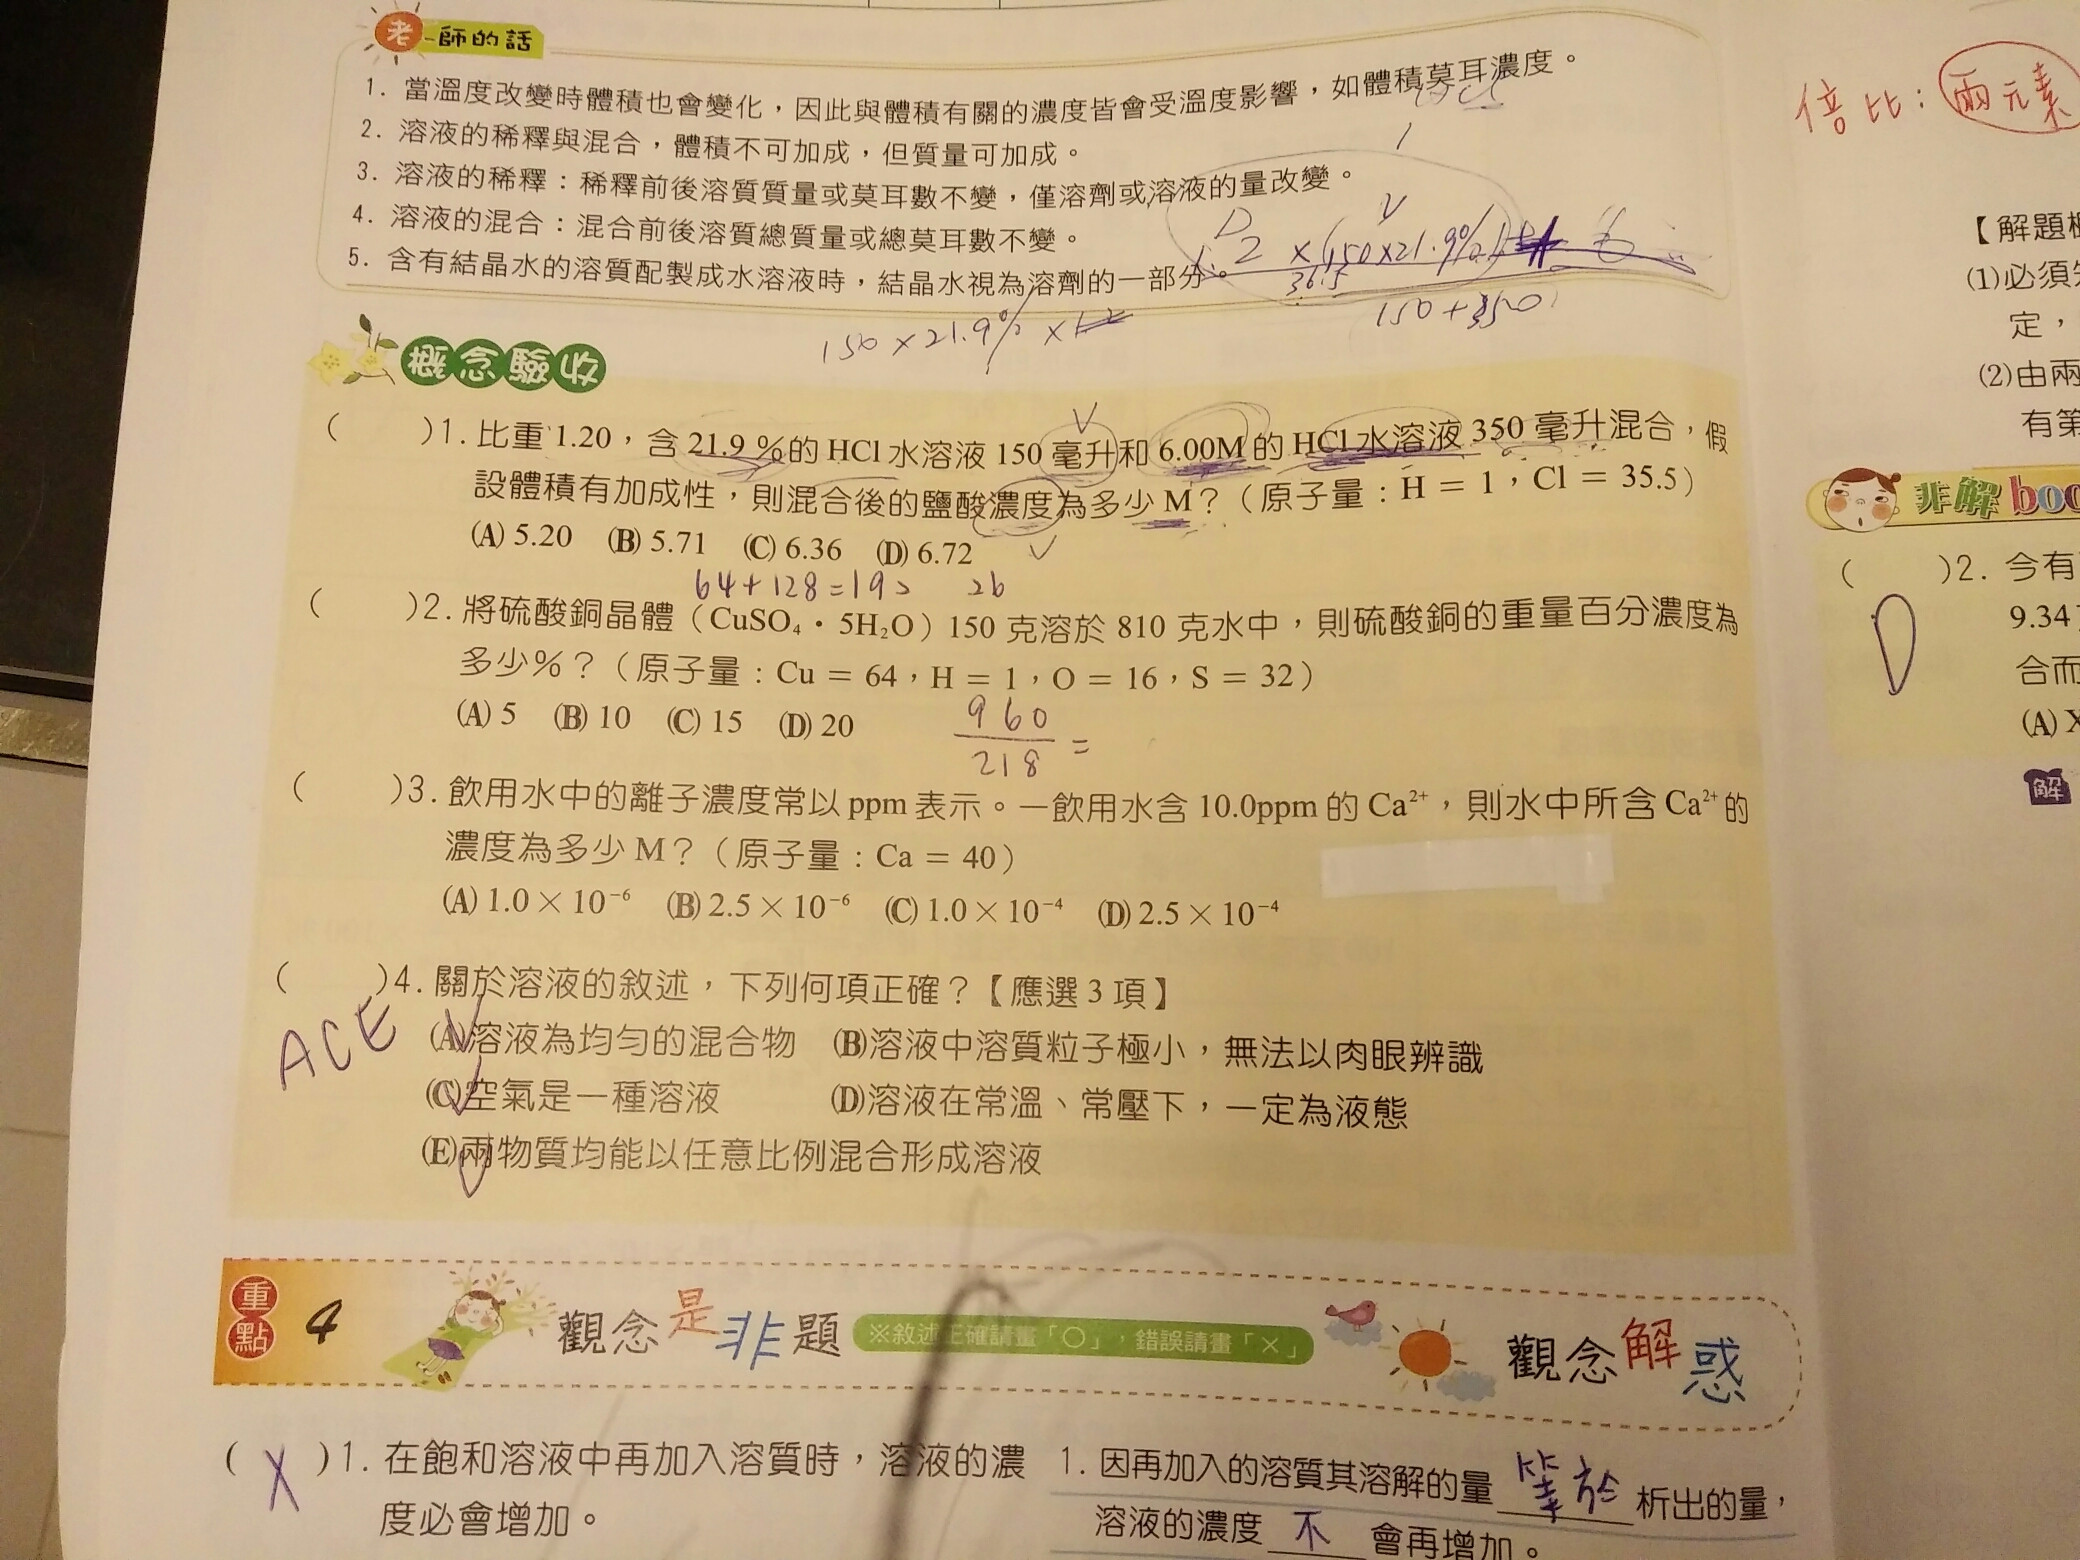 老師的話
1. 當溫度改變時體積也會變化，因此與體積有關的濃度皆會受溫度影響，如體積莫耳濃度。
2. 溶液的稀釋與混合，體積不可加成，但質量可加成。
3. 溶液的稀釋：稀釋前後溶質質量或莫耳數不變，僅溶劑或溶液的量改變。
4. 溶液的混合：混合前後溶質總質量或總莫耳數不變。
5. 含有結晶水的溶質配製成水溶液時，結晶水視為溶劑的一部分。
1.2 ×(150×21.9%)
36.5
150+350
150×21.9%×1.2
概念驗收
( )1. 比重 1.20，含 21.9 %的 HCl 水溶液 150 毫升和 6.00M 的 HCl 水溶液 350 毫升混合，假
設體積有加成性，則混合後的鹽酸濃度為多少 M？（原子量：H = 1，Cl = 35.5）
(A) 5.20 (B) 5.71 (C) 6.36 (D) 6.72
64+128=192 26
( )2. 將硫酸銅晶體（CuSO₄・5H₂O）150 克溶於 810 克水中，則硫酸銅的重量百分濃度為
多少%？（原子量：Cu = 64，H = 1，O = 16，S = 32）
(A) 5 (B) 10 (C) 15 (D) 20
960
218 =
( )3. 飲用水中的離子濃度常以 ppm 表示。一飲用水含 10.0ppm 的 Ca²⁺，則水中所含 Ca²⁺ 的
濃度為多少 M？（原子量：Ca = 40）
(A) 1.0 × 10⁻⁶ (B) 2.5 × 10⁻⁶ (C) 1.0 × 10⁻⁴ (D) 2.5 × 10⁻⁴
( )4. 關於溶液的敘述，下列何項正確？【應選 3 項】
ACE
(A)溶液為均勻的混合物 (B)溶液中溶質粒子極小，無法以肉眼辨識
(C)空氣是一種溶液 (D)溶液在常溫、常壓下，一定為液態
(E)兩物質均能以任意比例混合形成溶液
重點 4 觀念是非題 ※敘述正確請畫「○」，錯誤請畫「×」 觀念解惑
( X )1. 在飽和溶液中再加入溶質時，溶液的濃
度必會增加。
1. 因再加入的溶質其溶解的量 等於 析出的量，
溶液的濃度 不 會再增加。
倍比：兩元素
【解題
(1)必須
定，
(2)由兩
有第
非解 boo
( )2. 今有
D
9.34
合而
(A) X
解